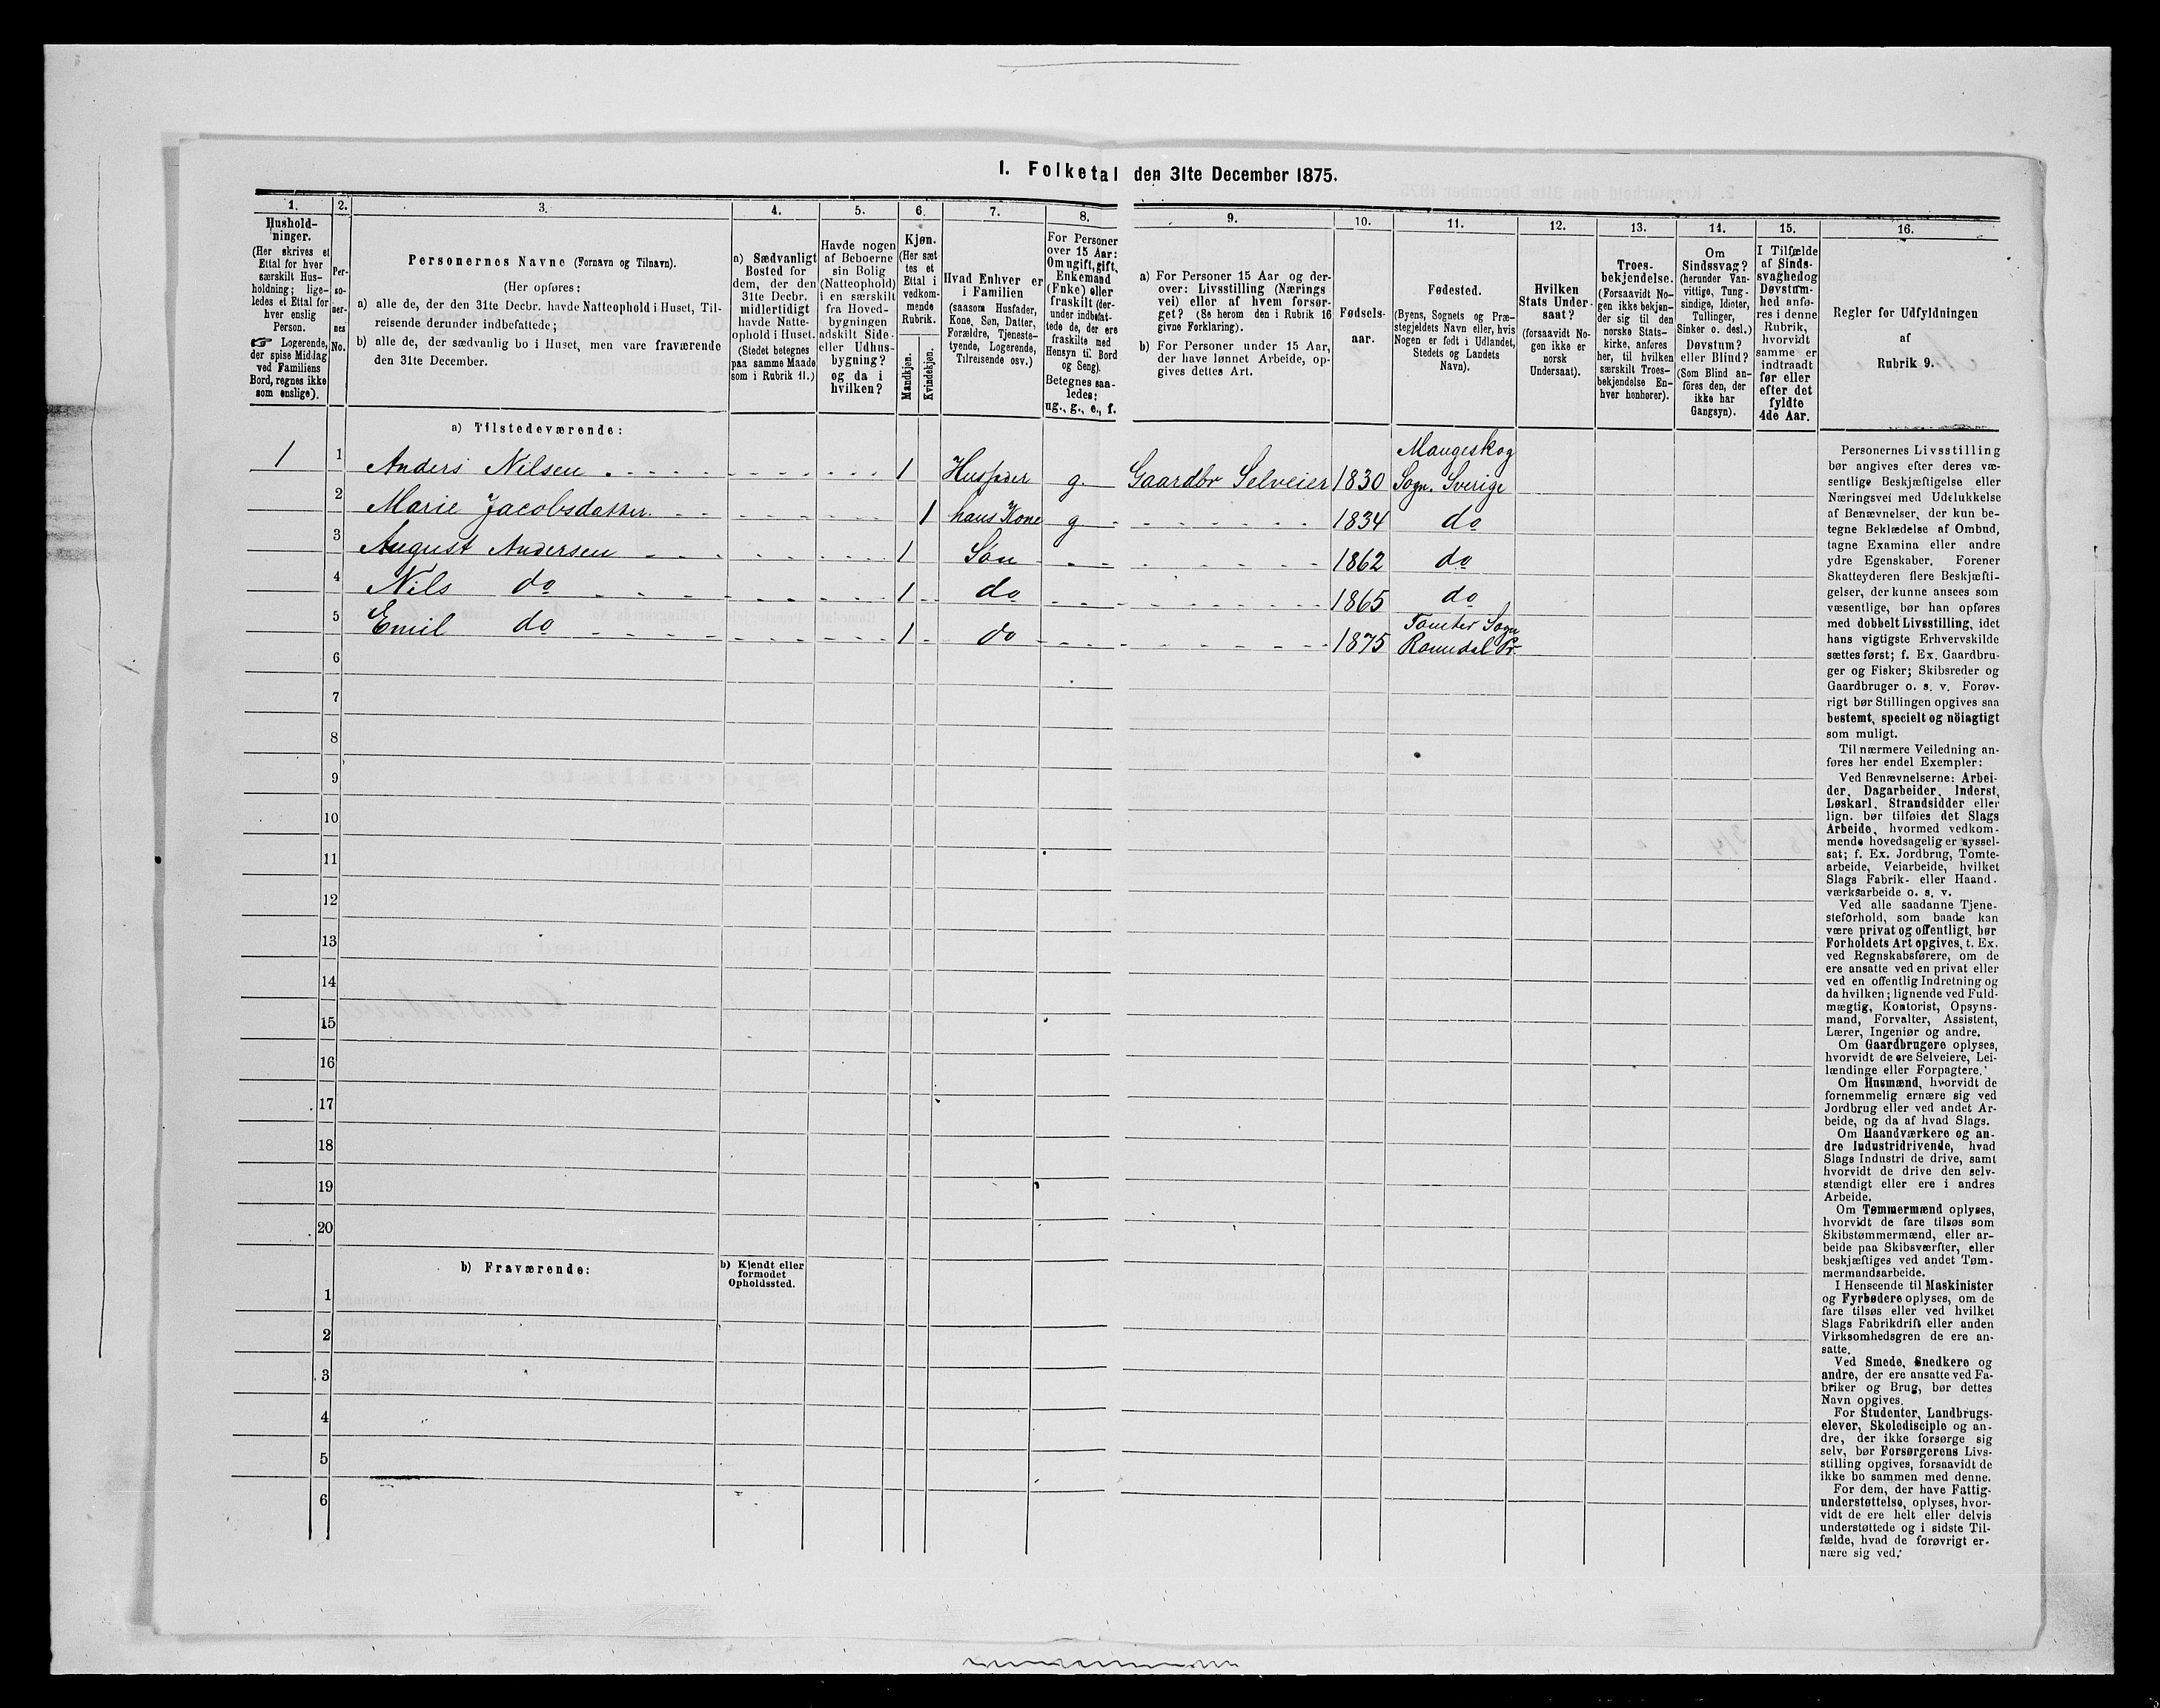 I. Folketal den 31te December 1875.
1.
Hushold-
ninger.
(Her skrives et
Ettal for hver
særskilt Hus-
holdning; lige-
ledes et Ettal for
hver enslig
Person.
☞ Logerende,
der spise Middag
ved Familiens
Bord, regnes ikke
som enslige).
2.
Per-
so-
ner-
nes
No.
3.
Personernes Navne (Fornavn og Tilnavn).
(Her opføres:
a) alle de, der den 31te Decbr. havde Natteophold i Huset, Til-
reisende derunder indbefattede;
b) alle de, der sædvanlig bo i Huset, men vare fraværende
den 31te December.
4.
a) Sædvanligt
Bosted for
dem, der den
31te Decbr.
midlertidigt
havde Natte-
ophold i Huset.
(Stedet betegnes
paa samme Maade
som i Rubrik 11.)
5.
Havde nogen
af Beboerne
sin Bolig
(Natteophold)
i en særskilt
fra Hoved-
bygningen
adskilt Side-
eller Udhus-
bygning?
og da i
hvilken?
6.
Kjøn.
(Her sæt
tes et
Ettal i
vedkom-
mende
Rubrik.
Mandkjøn.
Kvindekjøn.
7.
Hvad Enhver er
i Familien
(saasom Husfader,
Kone, Søn, Datter,
Forældre, Tjeneste-
tyende, Logerende,
Tilreisende osv.)
8.
For Personer
over 15 Aar:
Om ugift, gift,
Enkemand
(Enke) eller
fraskilt (der-
under indbefat-
tede de, der ere
fraskilte med
Hensyn til Bord
og Seng).
Betegnes saa-
ledes:
ug., g., e., f.
9.
a) For Personer 15 Aar og der-
over: Livsstilling (Nærings
vei) eller af hvem forsør-
get? (Se herom den i Rubrik 16
givne Forklaring).
b) For Personer under 15 Aar,
der have lønnet Arbeide, op-
gives dettes Art.
10.
Fødsels-
aar.
11.
Fødested.
(Byens, Sognets og Præ-
stegjeldets Navn eller, hvis
Nogen er født i Udlandet,
Stedets og Landets
Navn).
12.
Hvilken
Stats Under-
saat?
(forsaavidt No-
gen ikke er
norsk
Undersaat).
13.
Troes-
bekjendelse.
(Forsaavidt No-
gen ikke bekjen-
der sig til den
norske Stats-
kirke, anføres
her, til hvilken
særskilt Troes-
bekjendelse En-
hver henhører).
14.
Om
Sindssvag?
(herunder Van-
vittige, Tung-
sindige, Idioter,
Tullinger,
Sinker o. desl.)
Døvstum?
eller Blind?
(Som Blind an-
føres den, der
ikke har
Gangsyn).
15.
I Tilfælde
af Sinds-
svaghed og
Døvstum-
hed anfø-
res i denne
Rubrik,
hvorvidt
samme er
indtraadt
før eller
efter det
fyldte
4de Aar.
16.
Regler for Udfyldningen
af
Rubrik 9.
a) Tilstedeværende:
1 1 Anders Nilsen 1 Husfader g. Gaardbr Selveier 1830 Mangeskog
Sogn. Sverige
2 Marie Jacobsdatter. 1 hans Kone g 1834 do
3 August Andersen 1 Søn 1862 do
4 Nils do 1 do 1865 do
5 Emil do 1 do 1875 Tomter Sogn
Ramdal Pr
6
7
8
9
10
11
12
13
14
15
16
17
18
19
20
b) Fraværende:
b) Kjendt eller
formodet
Opholdssted.
1
2
3
4
5
6
Personernes Livsstilling
bør angives efter deres væ-
sentlige Beskjæftigelse eller
Næringsvei med Udelukkelse
af Benævnelser, der kun be-
tegne Beklædelse af Ombud,
tagne Examina eller andre
ydre Egenskaber. Forener
Skatteyderen flere Beskjæfti-
gelser, der kunne ansees som
væsentlige, bør han opføres
med dobbelt Livsstilling, idet
hans vigtigste Erhvervskilde
sættes først; f. Ex. Gaardbru-
ger og Fisker; Skibsreder og
Gaardbruger o. s. v. Forøv-
rigt bør Stillingen opgives saa
bestemt, specielt og nöiagtigt
som muligt.
Til nærmere Veiledning an-
føres her endel Exempler:
Ved Benævnelserne: Arbei-
der, Dagarbeider, Inderst,
Løskarl, Strandsidder eller
lign. bør tilføies det Slags
Arbeide, hvormed vedkom-
mende hovedsagelig er syssel-
sat; f. Ex. Jordbrug, Tomte-
arbeide, Veiarbeide, hvilket
Slags Fabrik- eller Haand-
værksarbeide o. s. v.
Ved alle saadanne Tjene-
steforhold, som baade kan
være privat og offentligt, bør
Forholdets Art opgives, t. Ex.
ved Regnskabsførere, om de
ere ansatte ved en privat eller
ved en offentlig Indretning og
da hvilken; lignende ved Fuld-
mægtig, Kontorist, Opsyns-
mand, Forvalter, Assistent,
Lærer, Ingeniør og andre.
Om Gaardbrugere oplyses,
hvorvidt de ere Selveiere, Lei-
lændinge eller Forpagtere.
Om Husmænd, hvorvidt de
fornemmelig ernære sig ved
Jordbrug eller ved andet Ar-
beide, og da af hvad Slags.
Om Haandværkere og an-
dre Industridrivende, hvad
Slags Industri de drive, samt
hvorvidt de drive den selv-
stændigt eller ere i andres
Arbeide.
Om Tømmermænd oplyses,
hvorvidt de fare tilsøs som
Skibstømmermænd, eller ar-
beide paa Skibsværfter, eller
beskjæftiges ved andet Tøm-
mermandsarbeide.
I Henseende til Maskinister
og Fyrbødere oplyses, om de
fare tilsøs eller ved hvilket
Slags Fabrikdrift eller anden
Virksomhedsgren de ere an-
satte.
Ved Smede, Snedkere og
andre, der ere ansatte ved Fa-
briker og Brug, bør dettes
Navn opgives.
For Studenter, Landbrugs-
elever, Skoledisciple og an-
dre, der ikke forsørge sig
selv, bør Forsørgerens Livs-
stilling opgives, forsaavidt de
ikke bo sammen med denne.
For dem, der have Fattig-
understøttelse, oplyses, hvor-
vidt de ere helt eller delvis
understøttede og i sidste Til-
fælde, hvad de forøvrigt er-
nære sig ved.